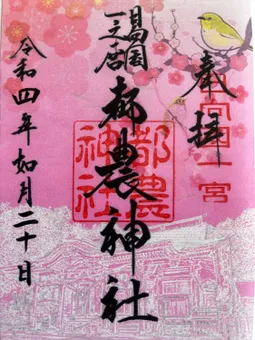 奉拝
日向国一宮
都農神社
都農
神社
令和四年如月二十日